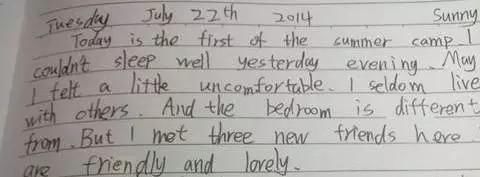 Tuesday July 22th 2014 Sunny
Today is the first of the summer camp. I
couldn't sleep well yesterday evening. May
I felt a little uncomfortable. I seldom live
with others. And the bedroom is different
from. But I met three new friends here.
are friendly and lovely.